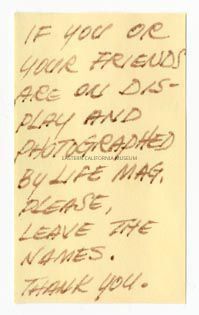 IF YOU OR
YOUR FRIENDS
ARE ON DIS-
PLAY AND
PHOTOGRAPHED
EASTERN CALIFORNIA MUSEUM
BY LIFE MAG.
PLEASE,
LEAVE THE
NAMES.
THANK YOU.